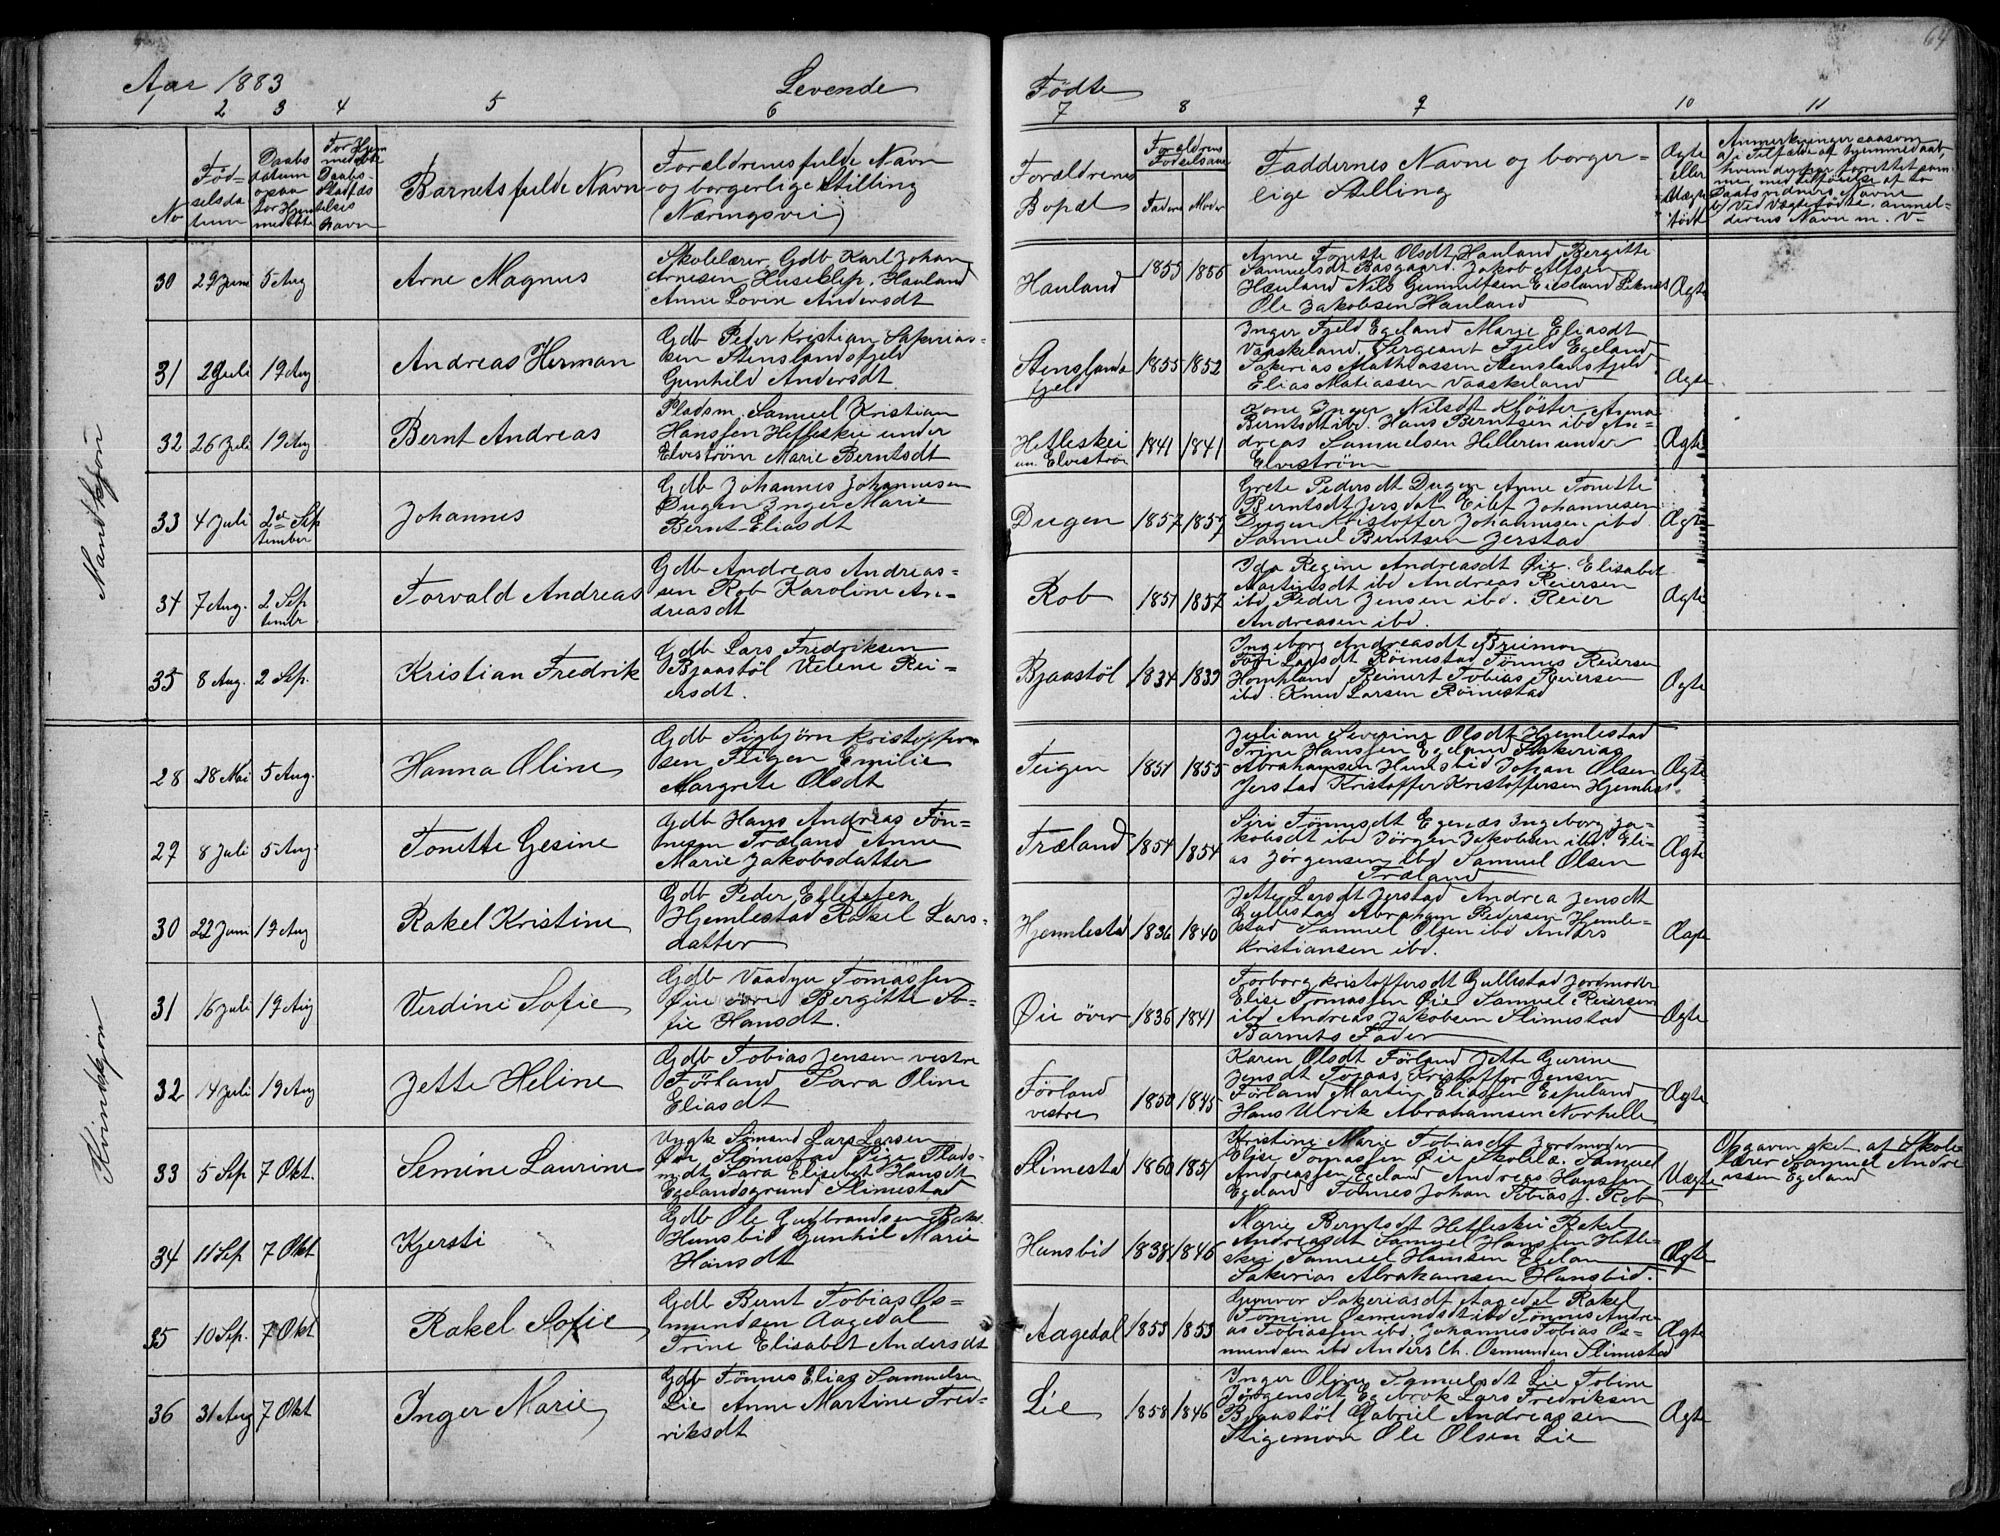 64
Aar 1883 Levende Fødte
1 2 3 4 5 6 7 8 9 10 11
No
Fød-
selsda
tum
Daabs
datum
Barnets fulde Navn
Forældrenes fulde Navn
og borgerlige Stilling
(Næringsvei)
Forældrenes
Bopæl
Forældrens
Fødselsaar
Fader Moder
Faddernes Navne og borger-
lige Stilling
Ægte
eller
Uægte
født
Anmerkninger saasom
Mandkjøn
30 29 Juni 5 Aug Arne Magnus
Skolelærer Gdb Karl Johan
Arnesen Huseklep, Hauland
Anne Lovise Andersdt
Hauland 1855 1856
Anne Tonette Olsdt Hauland Bergitte
Samuelsdt Jakob Alfsen
Hæuland Nils Gunnufsen Eidsland
Ole Jakobsen Hauland
Ægte
31 2 Juli 19 Aug Andreas Herman
Gdb Peder Kristian Sakarias-
sen Stenslandsfjeld
Gunhild Andersdt
Stenslands
fjeld 1855 1852
Inger Fjeld Egeland Marie Eliasdt
Vaaskeland. Sergeant Fjeld Egeland
Sakerias Mathiassen Stenslandsfjeld
Elias Matiassen Vaaskeland
Ægte
32 26 Juli 19 Aug Bernt Andreas
Pladsm. Samuel Kristian
Hanssen Hetleskei under
Elvestrøm Marie Berntsdt
Hetleskei
un. Elvestrøm 1841 1841
Kone Inger Nilsdt Anna
Berntsdt ibd. Hans Berntsen ibd An-
dreas Samuelsen Helleren under
Elvestrøm
Ægte
33 4 Juli 2de Sep
tember Johannes
Gdb Johannes Johannesen
Dugen Inger Marie
Bernt Eliasdt
Dugen 1857 1857
Grete Pedersdt Dugen Anne Tonette
Berntsdt Jerstad Eilef Johannesen
Dugen Kristoffer Johannesen ibd
Samuel Berntsen Jerstad
Ægte
34 7 Aug. 2 Sep
tembr Torvald Andreas
Gdb Andreas Andreas-
sen Rob Karoline An-
dreasdt
Rob 1851 1857
Ida Regine Andreasdt Øie. Elisabet
Martinsdt ibd Andreas Reiersen
ibd Peder Jensen ibd. Reier
Andreasen ibd.
Ægte
35 8 Aug. 2 Sep. Kristian Fredrik
Gdb Lars Fredriksen
Bjaastøl Velene Rei-
ersdt.
Bjaastøl 1834 1839
Ingeborg Andreasdt Breimon
Larsdt Røinestad Tønnes Reiersen
Hompland Reinert Tobias Reiersen
ibd. Knud Larsen Røinestad
Ægte
Kvindekjøn
28 28 Mai 5 Aug. Hanna Oline
Gdb Sigbjørn Kristoffer
sen Teigen Emilie
Margrete Olsdt
Teigen 1851 1855
Juliane Severine Olsdt Hjemlestad
Trine Hanssen Egeland Sakerias
Abrahamsen Hunsbid Johan Olsen
Jerstad Kristoffer Kristoffersen Hjemlest
Ægte
29 8 Juli 5 Aug. Tonette Gesine
Gdb Hans Andreas Tøn-
nesen Træland Anne
Marie Jakobsdatter
Træland 1854 1854
Siri Tønnesdt Egenæs Ingeborg Ja-
kobsdt ibd Jørgen Jakobsen ibd. Eli-
as Jørgensen ibd Samuel Olsen
Træland
Ægte
30 22 Juni 19 Aug Rakel Kristine
Gdb Peder Ellefsen
Hjemlestad Rakel Lars-
datter
Hjemlestad 1836 1840
Jette Larsdt Jerstad Andrea Jensdt
Gyllestad Abraham Pedersen Hjemle-
stad Samuel Olsen ibd Anders
Kristiansen ibd.
Ægte
31 16 Juli 19 Aug Verdine Sofie
Gdb Vaadger Tomassen
Øie øvre Bergitte So-
fie Hansdt.
Øie övre 1836 1841
Torborg Kristoffersdt Gyllestad Jordmoder
Elise Tomassen Øie Samuel Reiersen
ibd Andreas Jakobsen Slimestad
Barnets Fader
Ægte
32 14 Juli 19 Aug Jette Heline
Gdb Tobias Jensen vestre
Førland Sara Oline
Eliasdt
Førland
vestre 1850 1845
Karen Olsdt Førland Jette Gurine
Jensdt Kristoffer Jensen
Førland Martin Eliassen Espeland
Hans Ulrik Abrahamsen Norhelle
Ægte
33 5 Sep 7 Okt. Semine Laurine
Ungk Sømand Lars Larsen
Øvr Slimestad Pige Plads-
mdt Sara Elisebet Hansdt
Egelandsgrund Slimestad
Slimestad 1860 1851
Kristine Marie Tobiasdt Jordmoder
Elise Tomassen Øie Skolelæ. Samuel
Andreassen Egeland Andreas Hanssen
Egeland Tønnes Johan Tobiass. Rob
Uægte
Opgaven sket af Skole
lærer Samuel Andre
assen Egeland
34 11 Sep 7 Okt Kjersti
Gdb Ole Gudbrandsen
Hunsbid Gunhil Marie
Hansdt
Hunsbid 1838 1846
Marie Berntsdt Hetleskei Rakel
Andreasdt Samuel Hanssen Hetle-
skei Samuel Hansen Egelan
Sakerias Abrahamsen Hunsbid.
Ægte
35 10 Sep. 7 Okt Rakel Sofie
Gdb Bernt Tobias Os-
mundsen Aagedal
Trine Elisabet Andersdt
Aagedal 1853 1853
Gunvor Sakeriasdt Aagedal Rakel
Tomine Osmundsdt ibd Tønnes Andre-
as Tobiassen ibd. Johannes Tobias Os-
mundsen ibd Anders Ch. Osmundsen Slimestad
Ægte
36 31 Aug 7 Okt Inger Marie
Gdb Tønnes Elias Samuelsen
Lie Anne Martine Fred-
riksdt
Lie 1858 1846
Inger Oline Samuelsdt Lie Tobine
Jörgensdt Egebrok Lars Fredriksen
Bjaastøl Gabriel Andreassen
Stigemon Ole Olsen Lie
Ægte